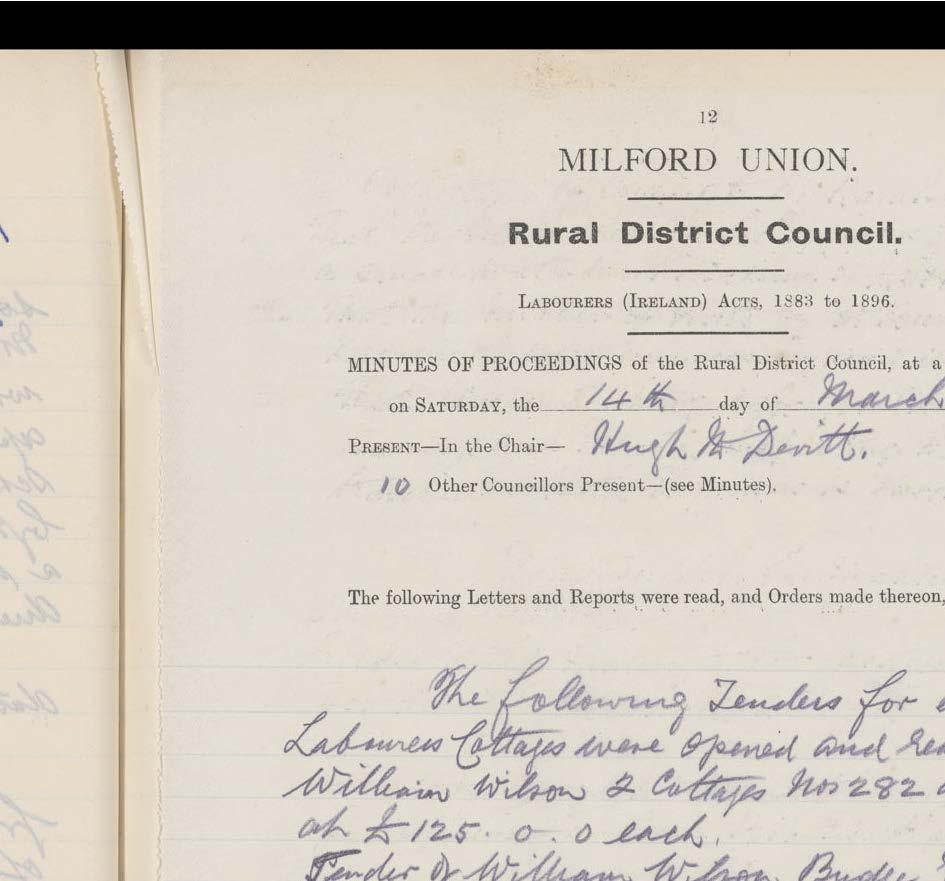 12
MILFORD UNION.
Rural District Council.
LABOURERS (IRELAND) ACTS, 1883 to 1896.
MINUTES OF PROCEEDINGS of the Rural District Council, at a
on SATURDAY, the 14th day of March
PRESENT—In the Chair— Hugh Mc Devitt.
10 Other Councillors Present—(see Minutes).
The following Letters and Reports were read, and Orders made thereon,
The following Tenders for
Labourers Cottages were opened and
William Wilson 2 Cottages Nos 282
at £125. 0. 0 each.
Tender of William Wilson